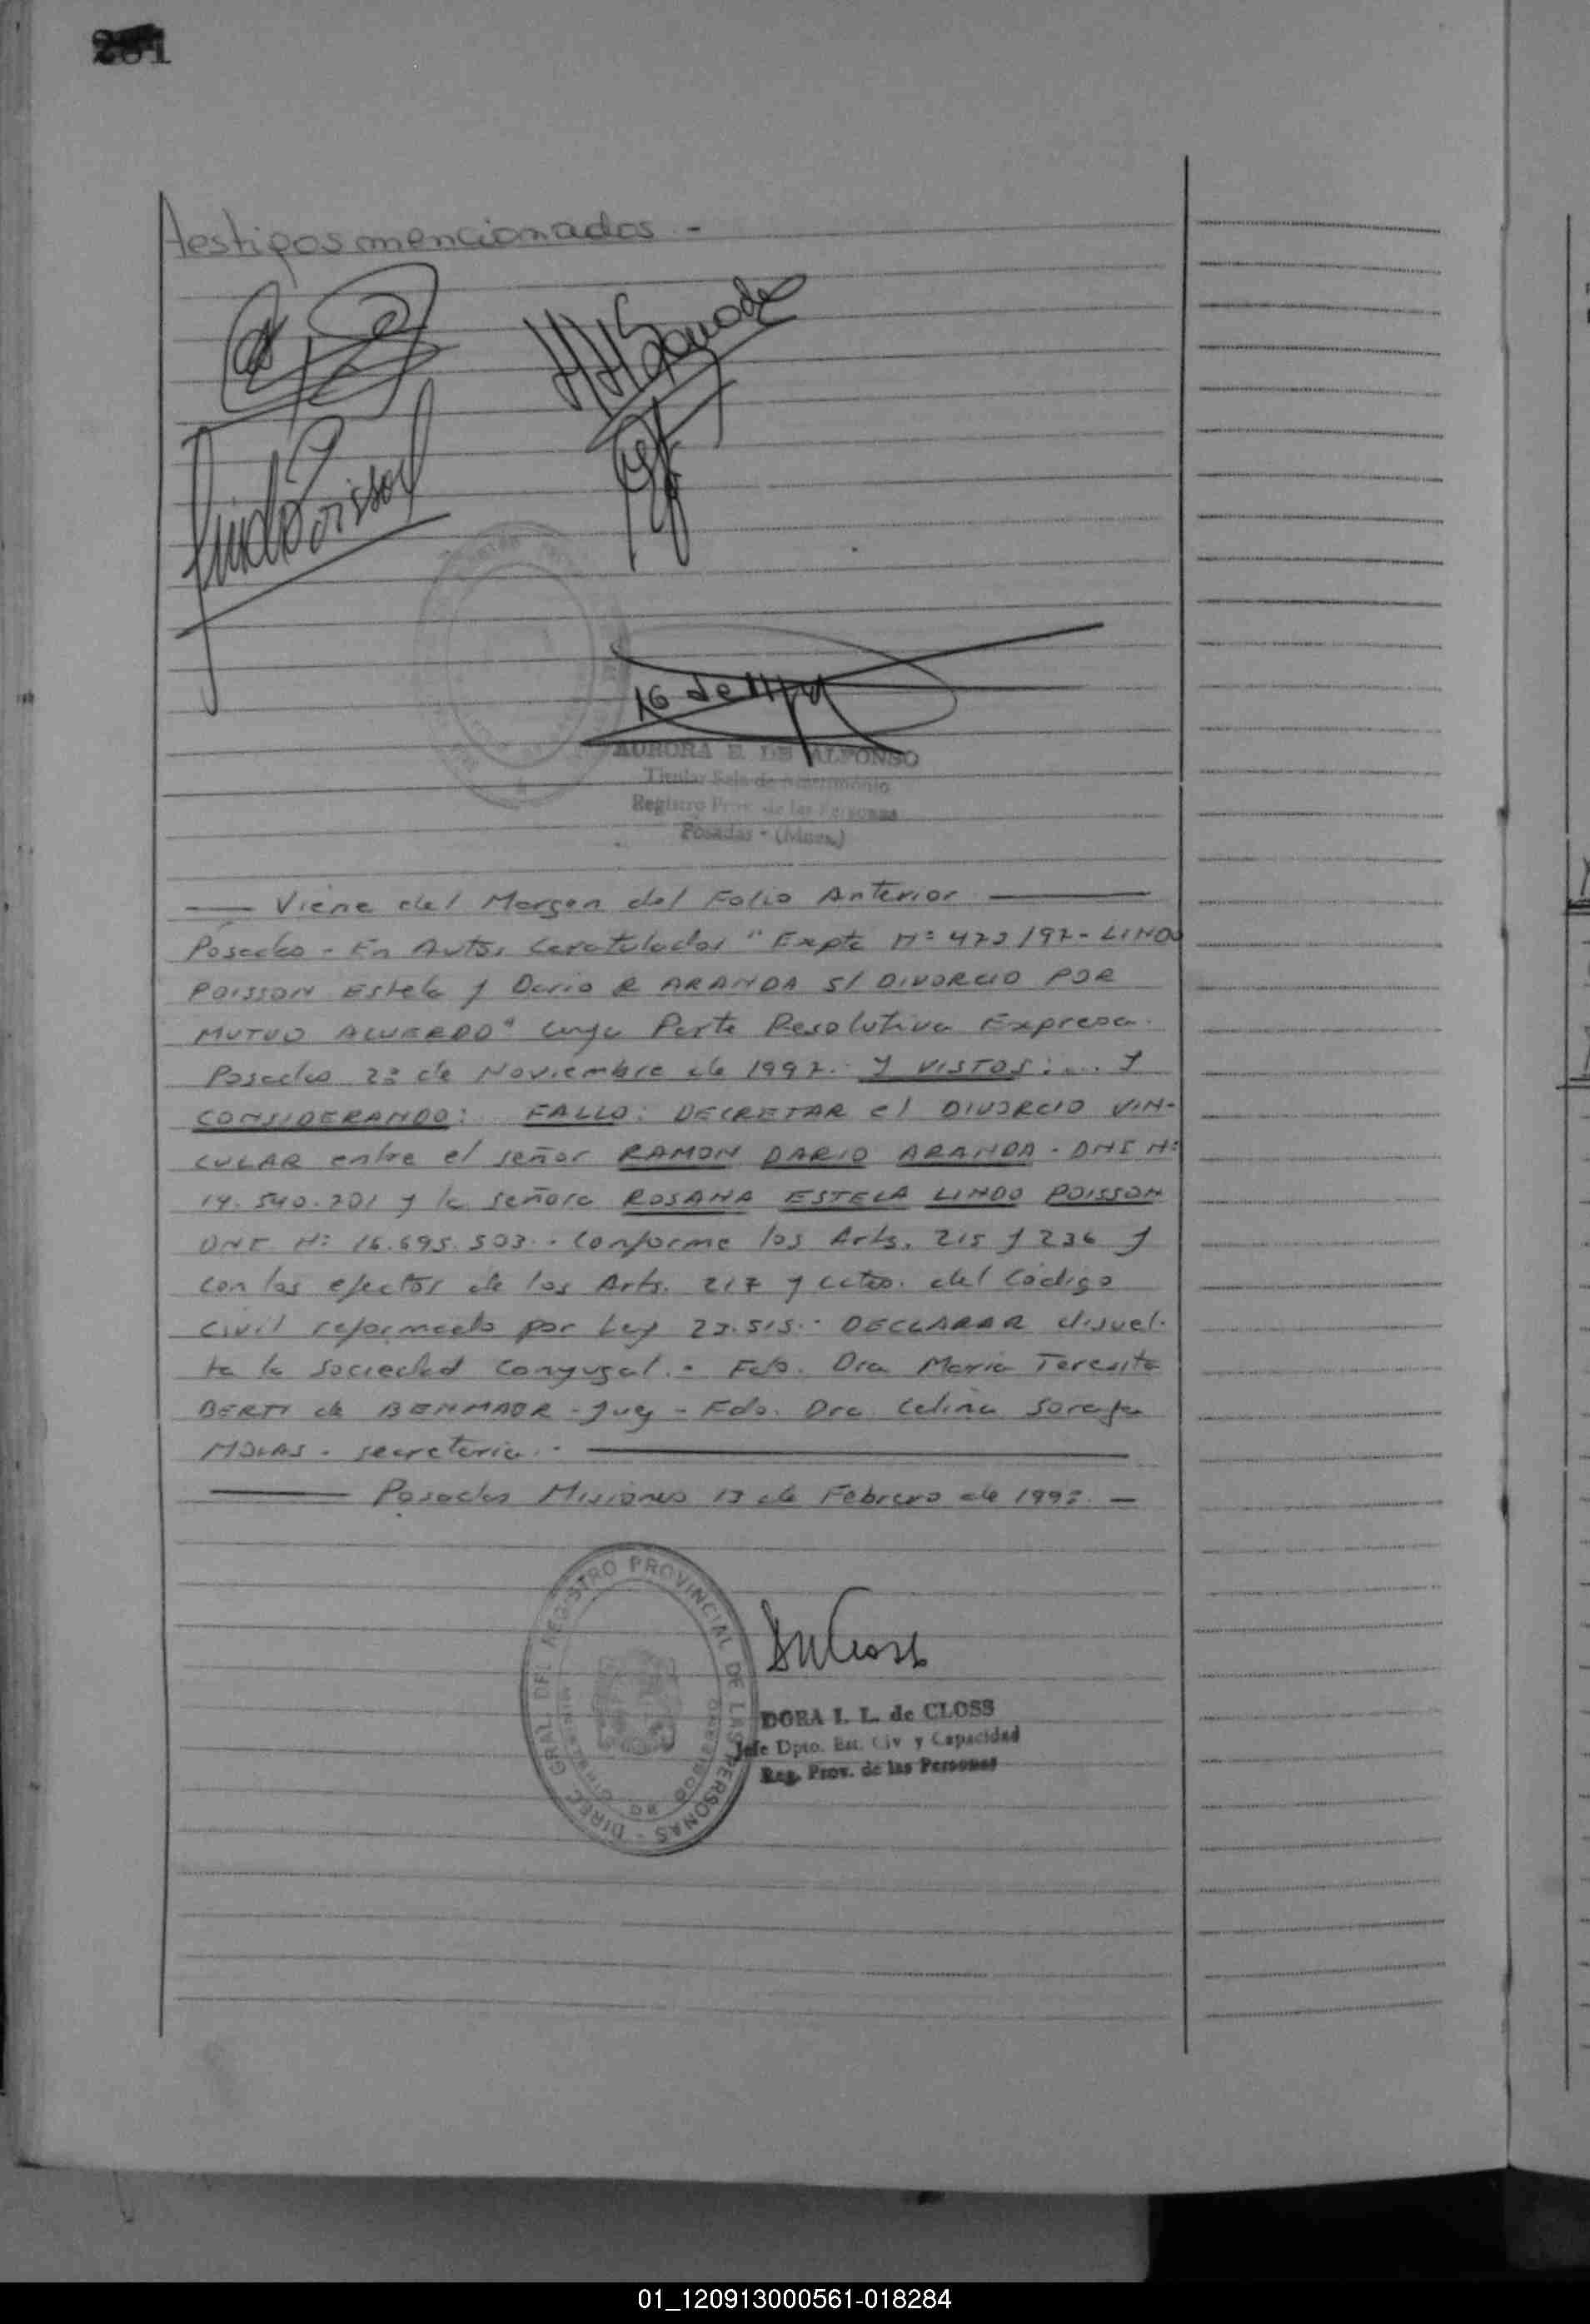 testigos mencionados -
Lindo Poisson
16 de
AURORA E. DE ALFONSO
Titular Sala de Matrimonio
Registro Prov. de las Personas
Posadas - (Mnes.)
Viene del Margen del Folio Anterior
Posadas - En Autos Caratulados "Expte Nº 473/97 - LINDO
POISSON Estela y Dario R ARANDA S/ DIVORCIO POR
MUTUO ACUERDO" cuya Parte Resolutiva Expresa.
Posadas de Noviembre de 1997. Y VISTOS: ... Y
CONSIDERANDO: FALLO: DECRETAR el DIVORCIO VIN-
CULAR entre el señor RAMON DARIO ARANDA - DNI Nº
14.540.201 y la señora ROSANA ESTELA LINDO POISSON
DNI Nº 16.695.503.- Conforme los Arts. 215 y 236 y
con los efectos de los Arts. 217 y cctes. del Código
Civil reformado por Ley 23.515.- DECLARAR disuel-
ta la Sociedad Conyugal.- Fdo. Dra Maria Teresita
BERTI de BENMAOR - Juez - Fdo. Dra Celina
MOLAS - secretaria.-
Posadas Misiones 13 de Febrero de 1998. -
DIREC. GRAL. DEL REGISTRO PROVINCIAL DE LAS PERSONAS
DORA I. L. de CLOSS
Jefe Dpto. Est. Civ y Capacidad
Reg. Prov. de las Personas
01_120913000561-018284